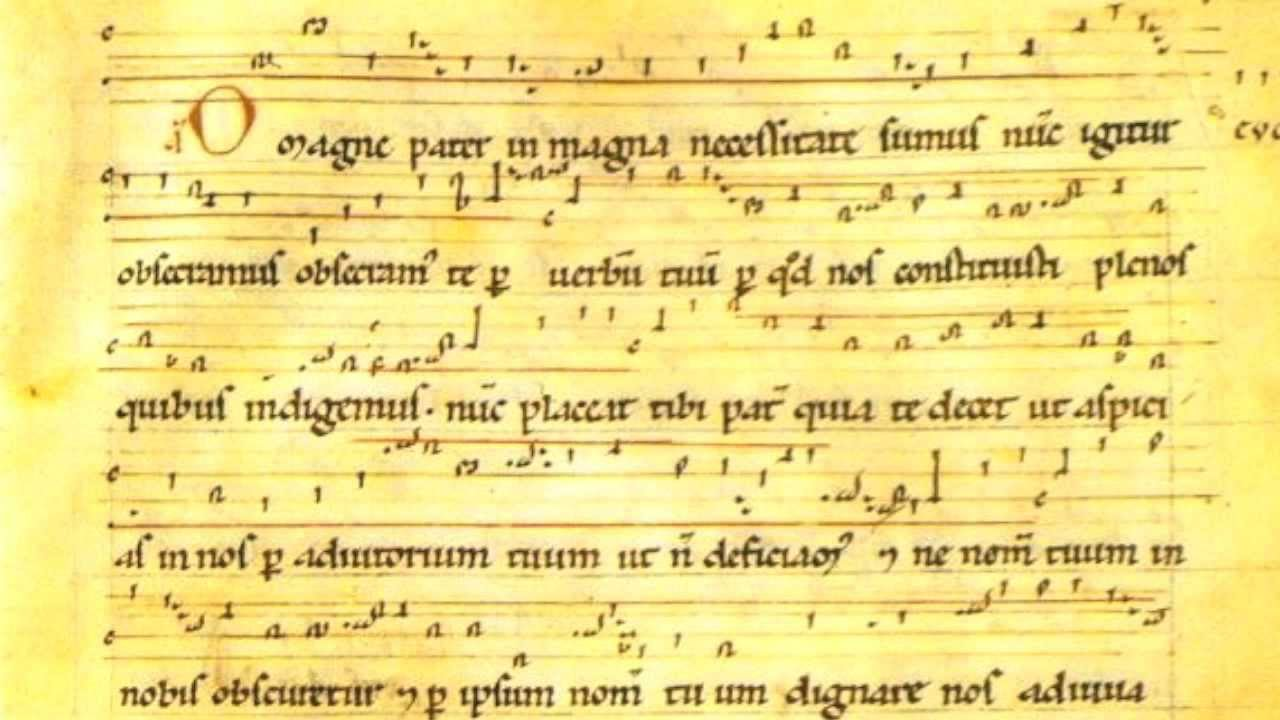 O magne pater in magna necessitate sumus nūc igitur
obsecramus obsecram᾽ te ꝑ uerbū tuū ꝑ qd nos constituisti plenos
quibus indigemus. nūc placeat tibi pat̄ quia te decet ut aspici
as in nos ꝑ adiutorium tuum ut n̄ deficiam᾽ ⁊ ne nom̄ tuum in
nobis obscuretur ⁊ ꝑ ipsum nom̄ tuum dignare nos adiuua